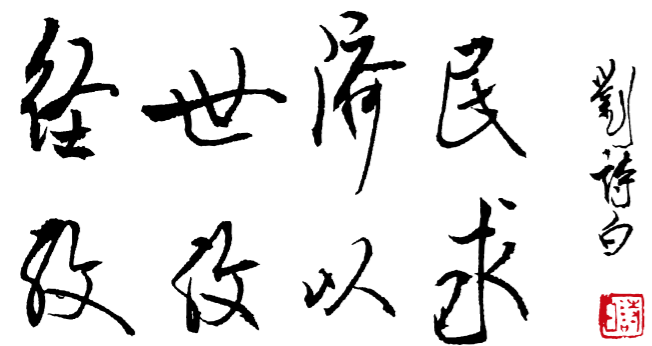 经世济民
孜孜以求
劉詩白